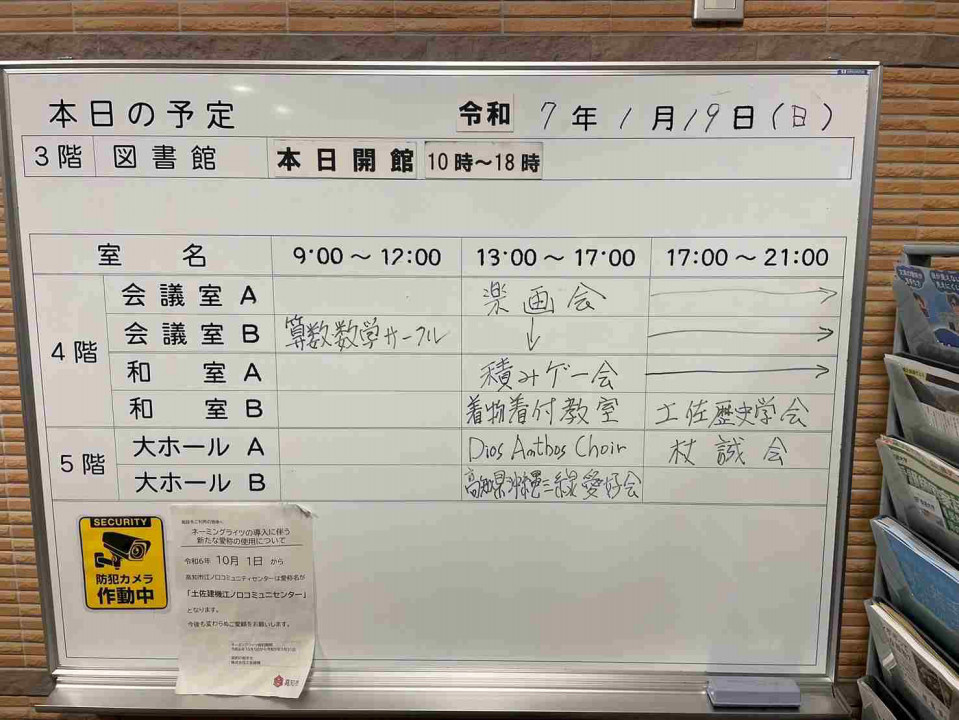 本日の予定 令和 7年 1月19日(日)
3階 図書館 本日開館 10時～18時
室 名 9:00～12:00 13:00～17:00 17:00～21:00
4階
会議室 A 楽画会 →
会議室 B 算数数学サークル ↓ →
和 室 A 積みゲー会 →
和 室 B 着物着付教室 土佐歴史学会
5階
大ホール A Dios Anthos Choir 杖誠会
大ホール B 高知県沖縄三線愛好会
SECURITY
防犯カメラ
作動中
施設をご利用の皆様へ
ネーミングライツの導入に伴う
新たな愛称の使用について
令和6年 10月 1日 から
高知市江ノ口コミュニティセンターは愛称名が
「土佐建機江ノ口コミュニセンター」
となります。
今後も変わらぬご愛顧をお願いします。
高知市